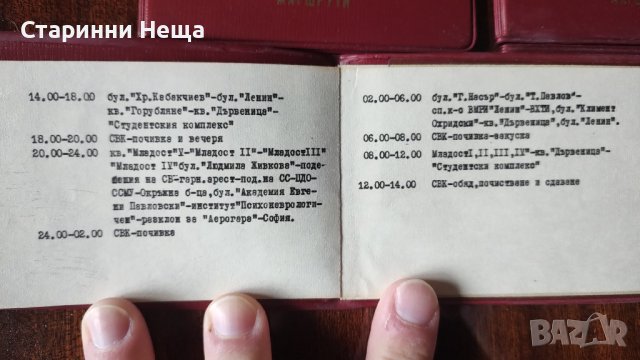 Старинни Неща
МАРШРУТИ
14.00-18.00 бул."Хр.Кабакчиев"-бул."Ленин"-
кв."Горубляне"-кв."Дървеница"-
"Студентския комплекс"
18.00-20.00 СВК-почивка и вечеря
20.00-24.00 кв."Младост"V-"Младост II"-"МладостIII"
"Младост IV"бул."Людмила Живкова"-поде-
ления на СВ-гарн.арест-под.на СС-ШЛО-
ССМУ-Окръжна б-ца,бул."Академия Евге-
ни Павловски"-институт"Психоневрологи-
чен"-разклон за "Аерогара"-София.
24.00-02.00 СВК-почивка
02.00-06.00 бул."Г.Насър"-бул."Т.Павлов"-
сп.к-с ВМРИ"Ленин"-ВХТИ,бул."Климент
Охридски"-кв."Дървеница",бул."Ленин".
06.00-08.00 СВК-почивка-закуска
08.00-12.00 МладостI,II,III,IV-кв."Дървеница"-
"Студентски комплекс"
12.00-14.00 СВК-обяд,почистване и сдаване
BAZAR.bg